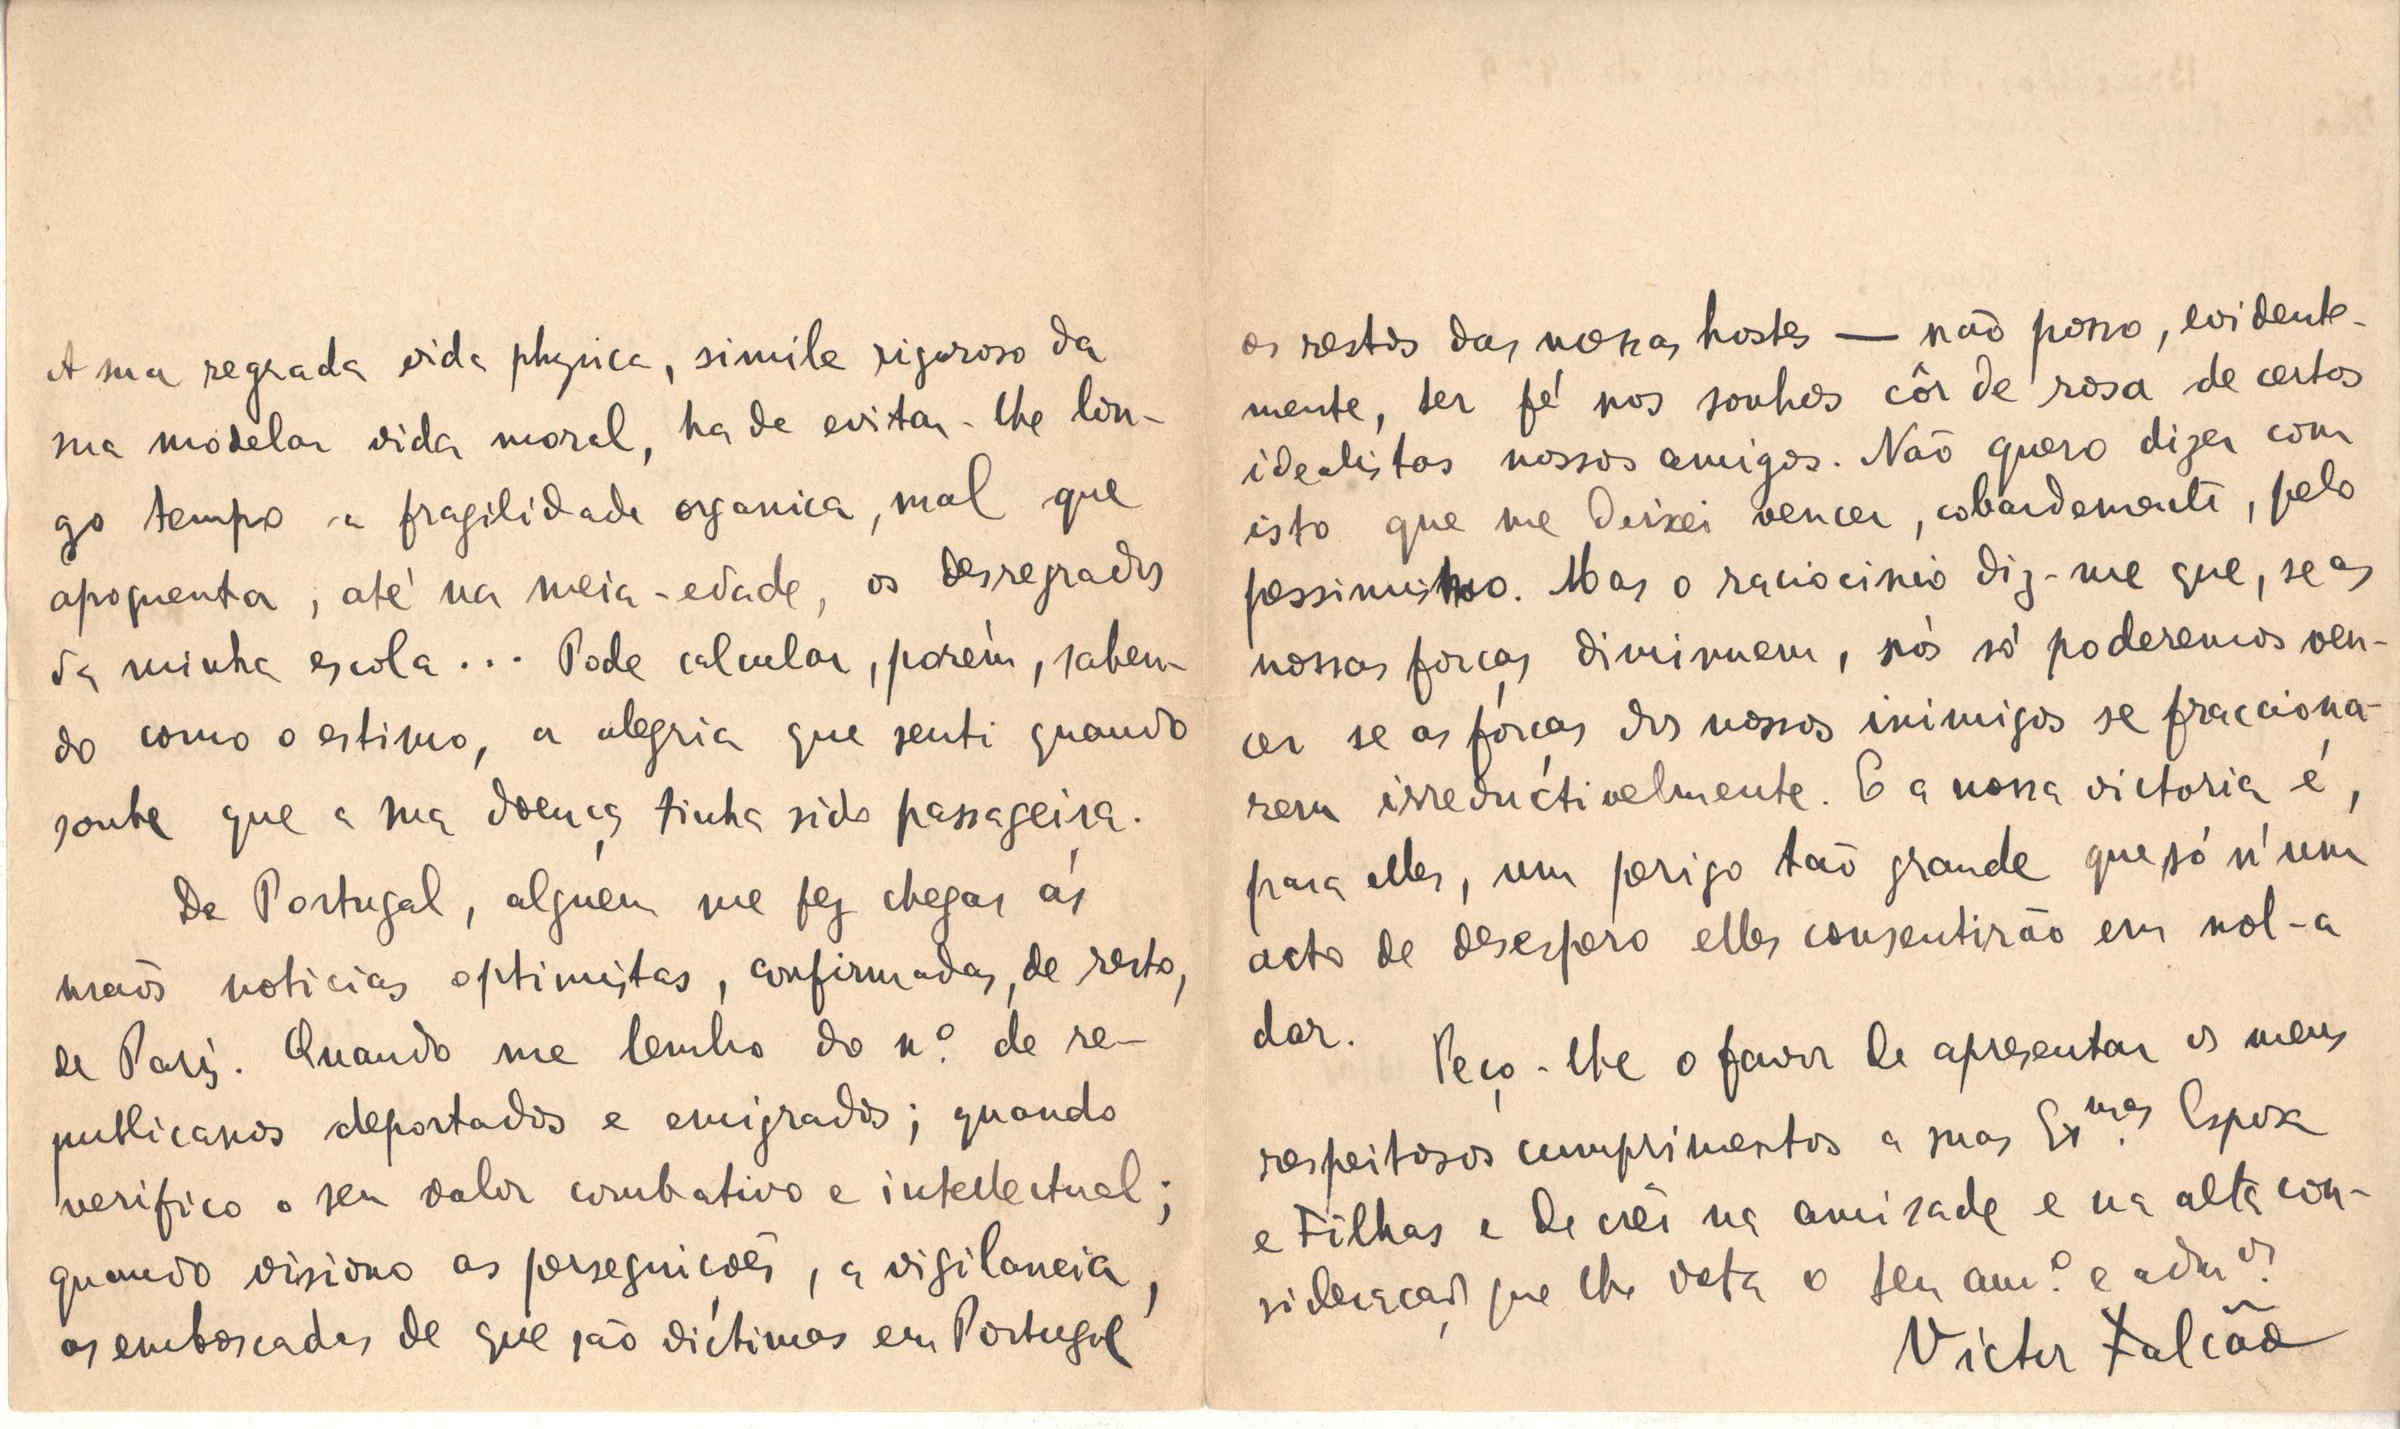 A sua regrada vida physica, simile rigoroso da
sua modelar vida moral, ha de evitar-lhe lon-
go tempo a fragilidade organica, mal que
apoquenta, até na meia-edade, os desregrados
da minha escola... Pode calcular, porém, saben-
do como o estimo, a alegria que senti quando
soube que a sua doença tinha sido passageira.
De Portugal, alguém me fez chegar ás
maõs noticias optimistas, confirmadas, de resto,
de Paris. Quando me lembro do n.º de re-
publicanos deportados e emigrados; quando
verifico o seu valor combativo e intellectual;
quando visiono as perseguições, a vigilancia,
as emboscadas de que são victimas em Portugal
os restos das nossas hostes — não posso, evidente-
mente, ter fé nos sonhos côr de rosa de certos
idealistas nossos amigos. Não quero dizer com
isto que me deixei vencer, cobardemente, pelo
pessimismo. Mas o raciocinio diz-me que, se as
nossas forças diminuem, nós só poderemos ven-
cer se as fórças dos nossos inimigos se fracciona-
rem irreductivelmente. E a nossa victoria é,
para elles, um perigo tão grande que só n'um
acto de desespero elles consentirão em nol-a
dar.
Peço-lhe o favor de apresentar os meus
respeitosos cumprimentos a suas Ex.mas Esposa
e Filhas e de crêr na amisade e na alta con-
sideração que lhe vota o seu am.º e adm.or
Victor Falcão